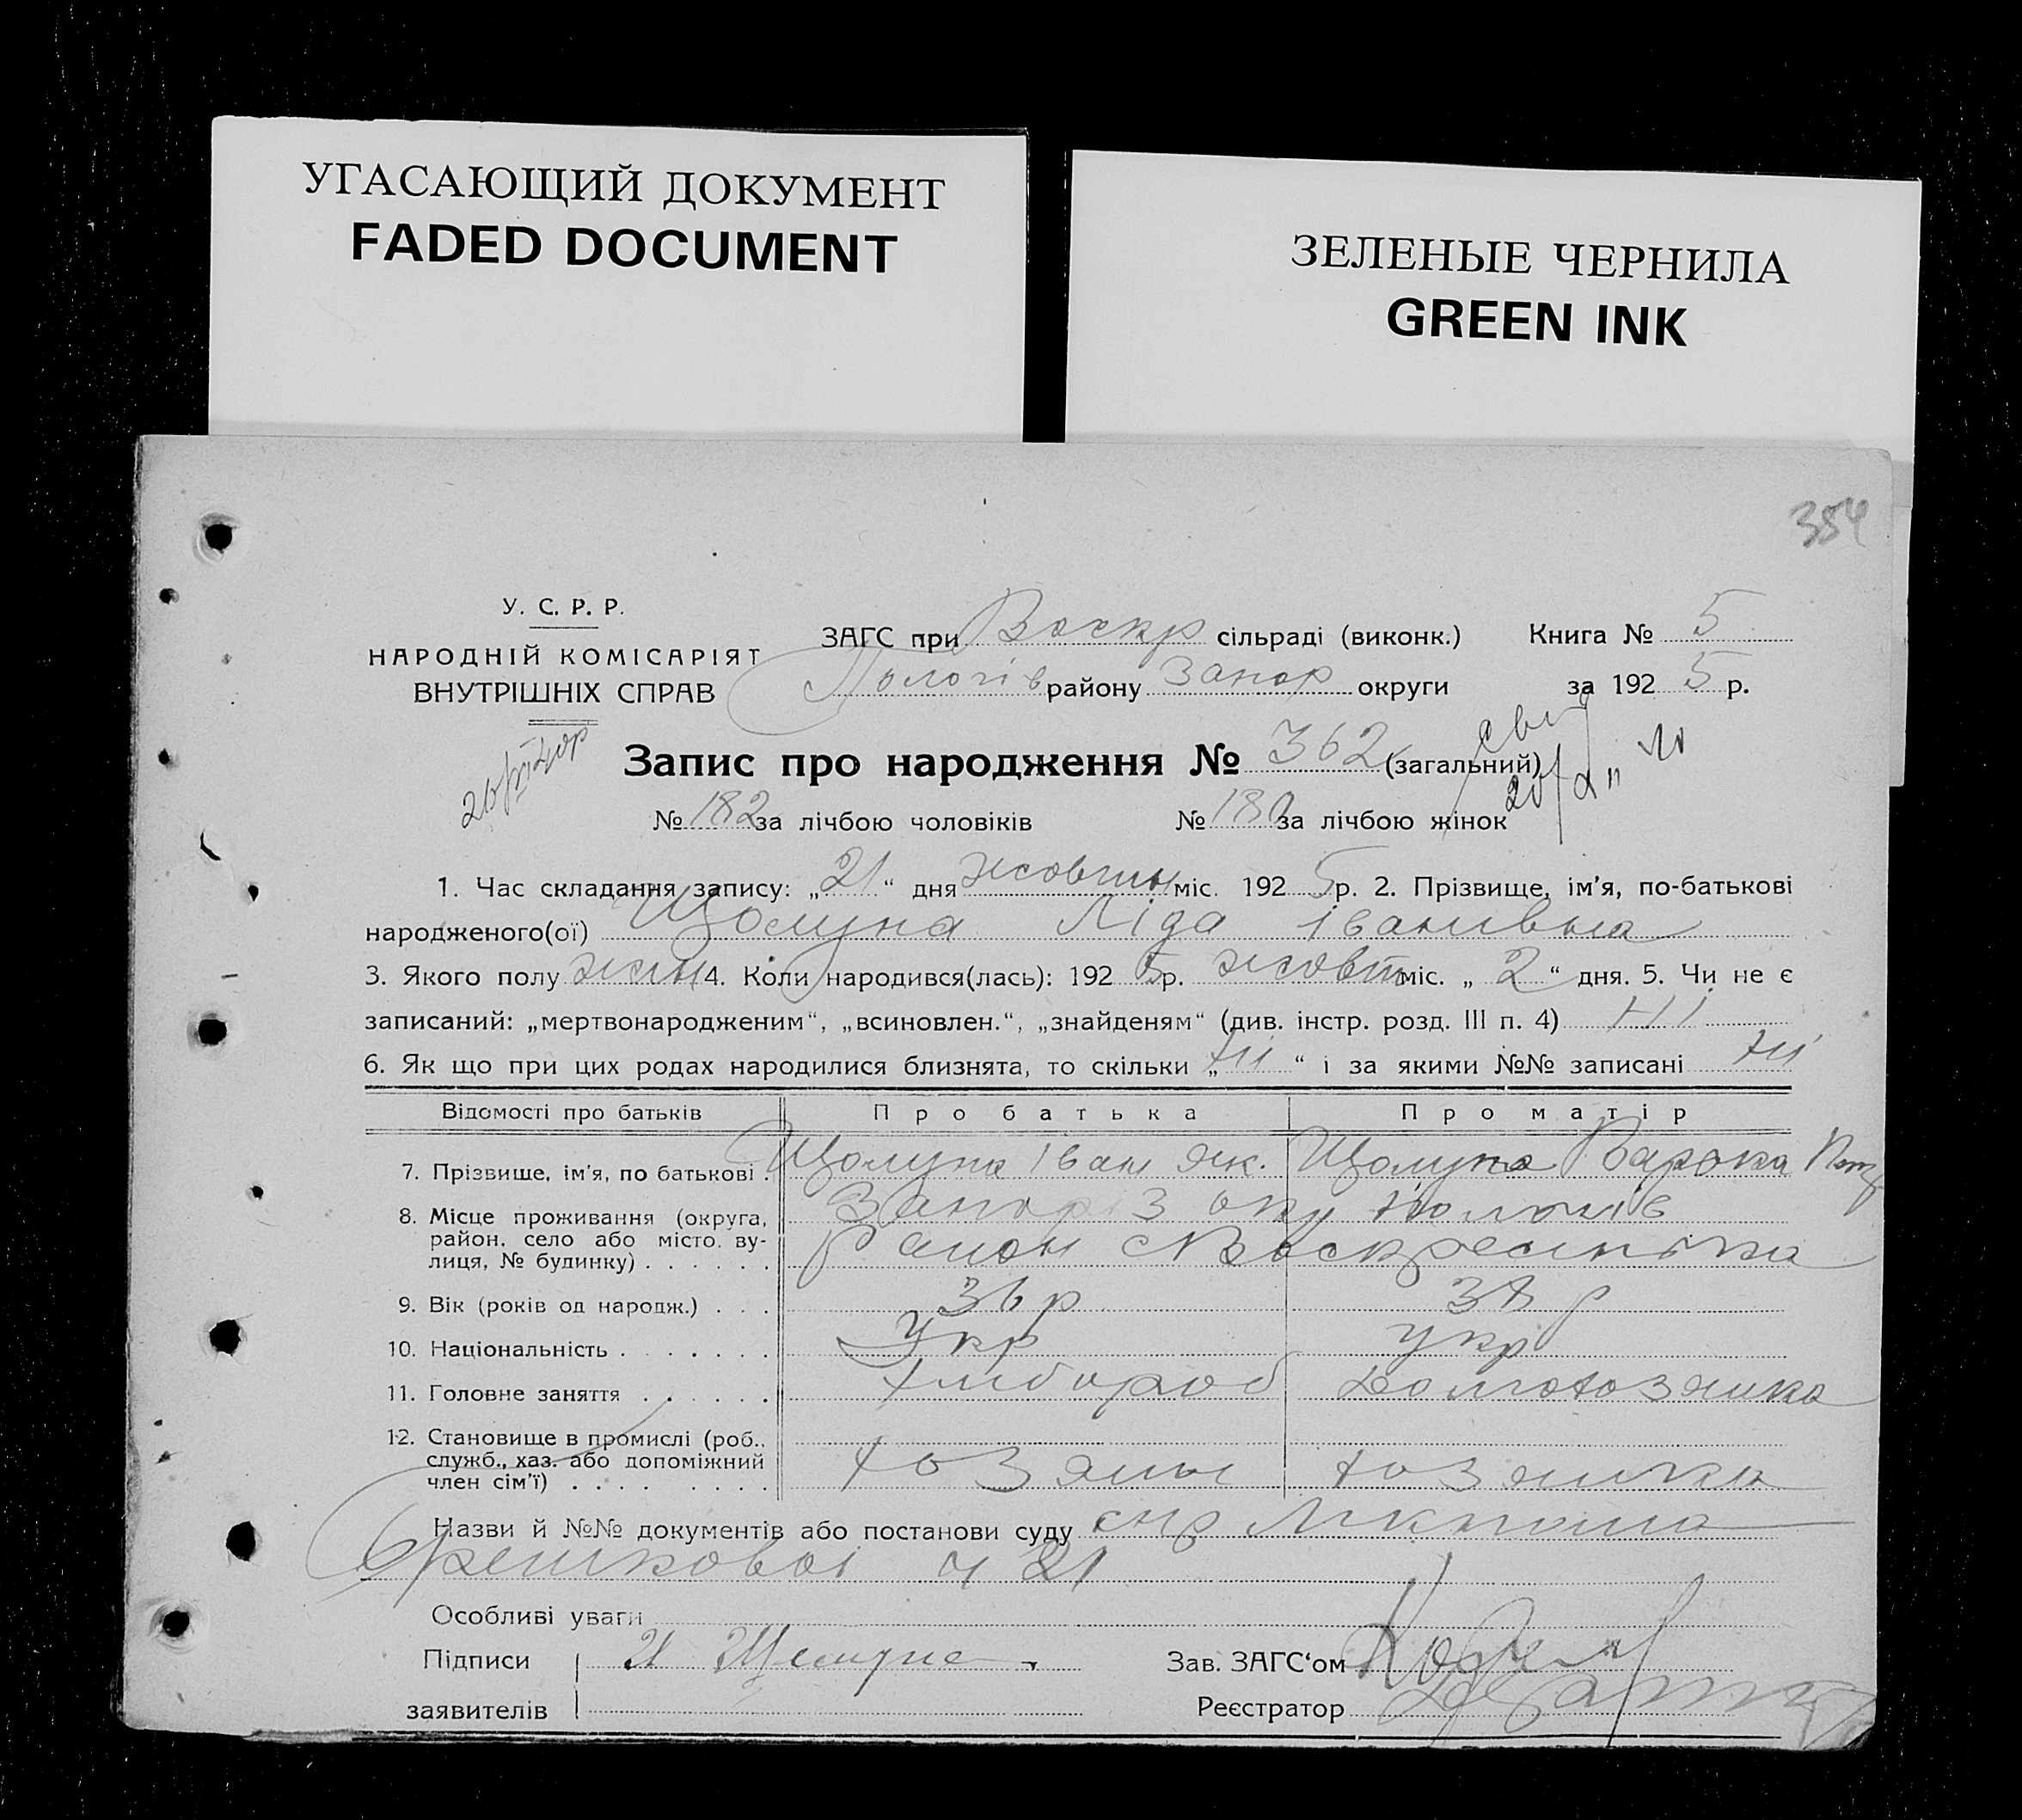 УГАСАЮЩИЙ ДОКУМЕНТ
FADED DOCUMENT
ЗЕЛЕНЫЕ ЧЕРНИЛА
GREEN INK
354
У. С. Р. Р.
НАРОДНІЙ КОМІСАРІЯТ
ВНУТРІШНІХ СПРАВ
ЗАГС при Воскр сільраді (виконк.) Книга № 5
Пологів району Запор округи за 1925 р.
Запис про народження № 362 (загальний)
№ 182 за лічбою чоловіків № 180 за лічбою жінок
1. Час складання запису: „21“ дня жовтн міс. 1925 р. 2. Прізвище, ім’я, по-батькові
народженого(ої) Ліда Іванівна
3. Якого полу жін 4. Коли народився(лась): 1925 р. жовт міс. „2“ дня. 5. Чи не є
записаний: „мертвонародженим“, „всиновлен.“, „знайденям“ (див. інстр. розд. III п. 4) Ні
6. Як що при цих родах народилися близнята, то скільки „ні“ і за якими №№ записані ні
Відомості про батьків Про батька Про матір
7. Прізвище, ім’я, по батькові . Іван Як.
8. Місце проживання (округа, Запоріз окр Пологів
район, село або місто, ву- район с Воскресинька
лиця, № будинку) . . . . . .
9. Вік (років од народж.) . . . 36 р 38 р
10. Національність . . . . . . . Укр укр
11. Головне заняття . . . . . . Хлібороб домохозяйка
12. Становище в промислі (роб.,
служб., хаз. або допоміжний хозяин хозяйка
член сім’ї) . . . . . . . .
Назви й №№ документів або постанови суду
ч 21
Особливі уваги
Підписи И Зав. ЗАГС‘ом
заявителів Реєстратор